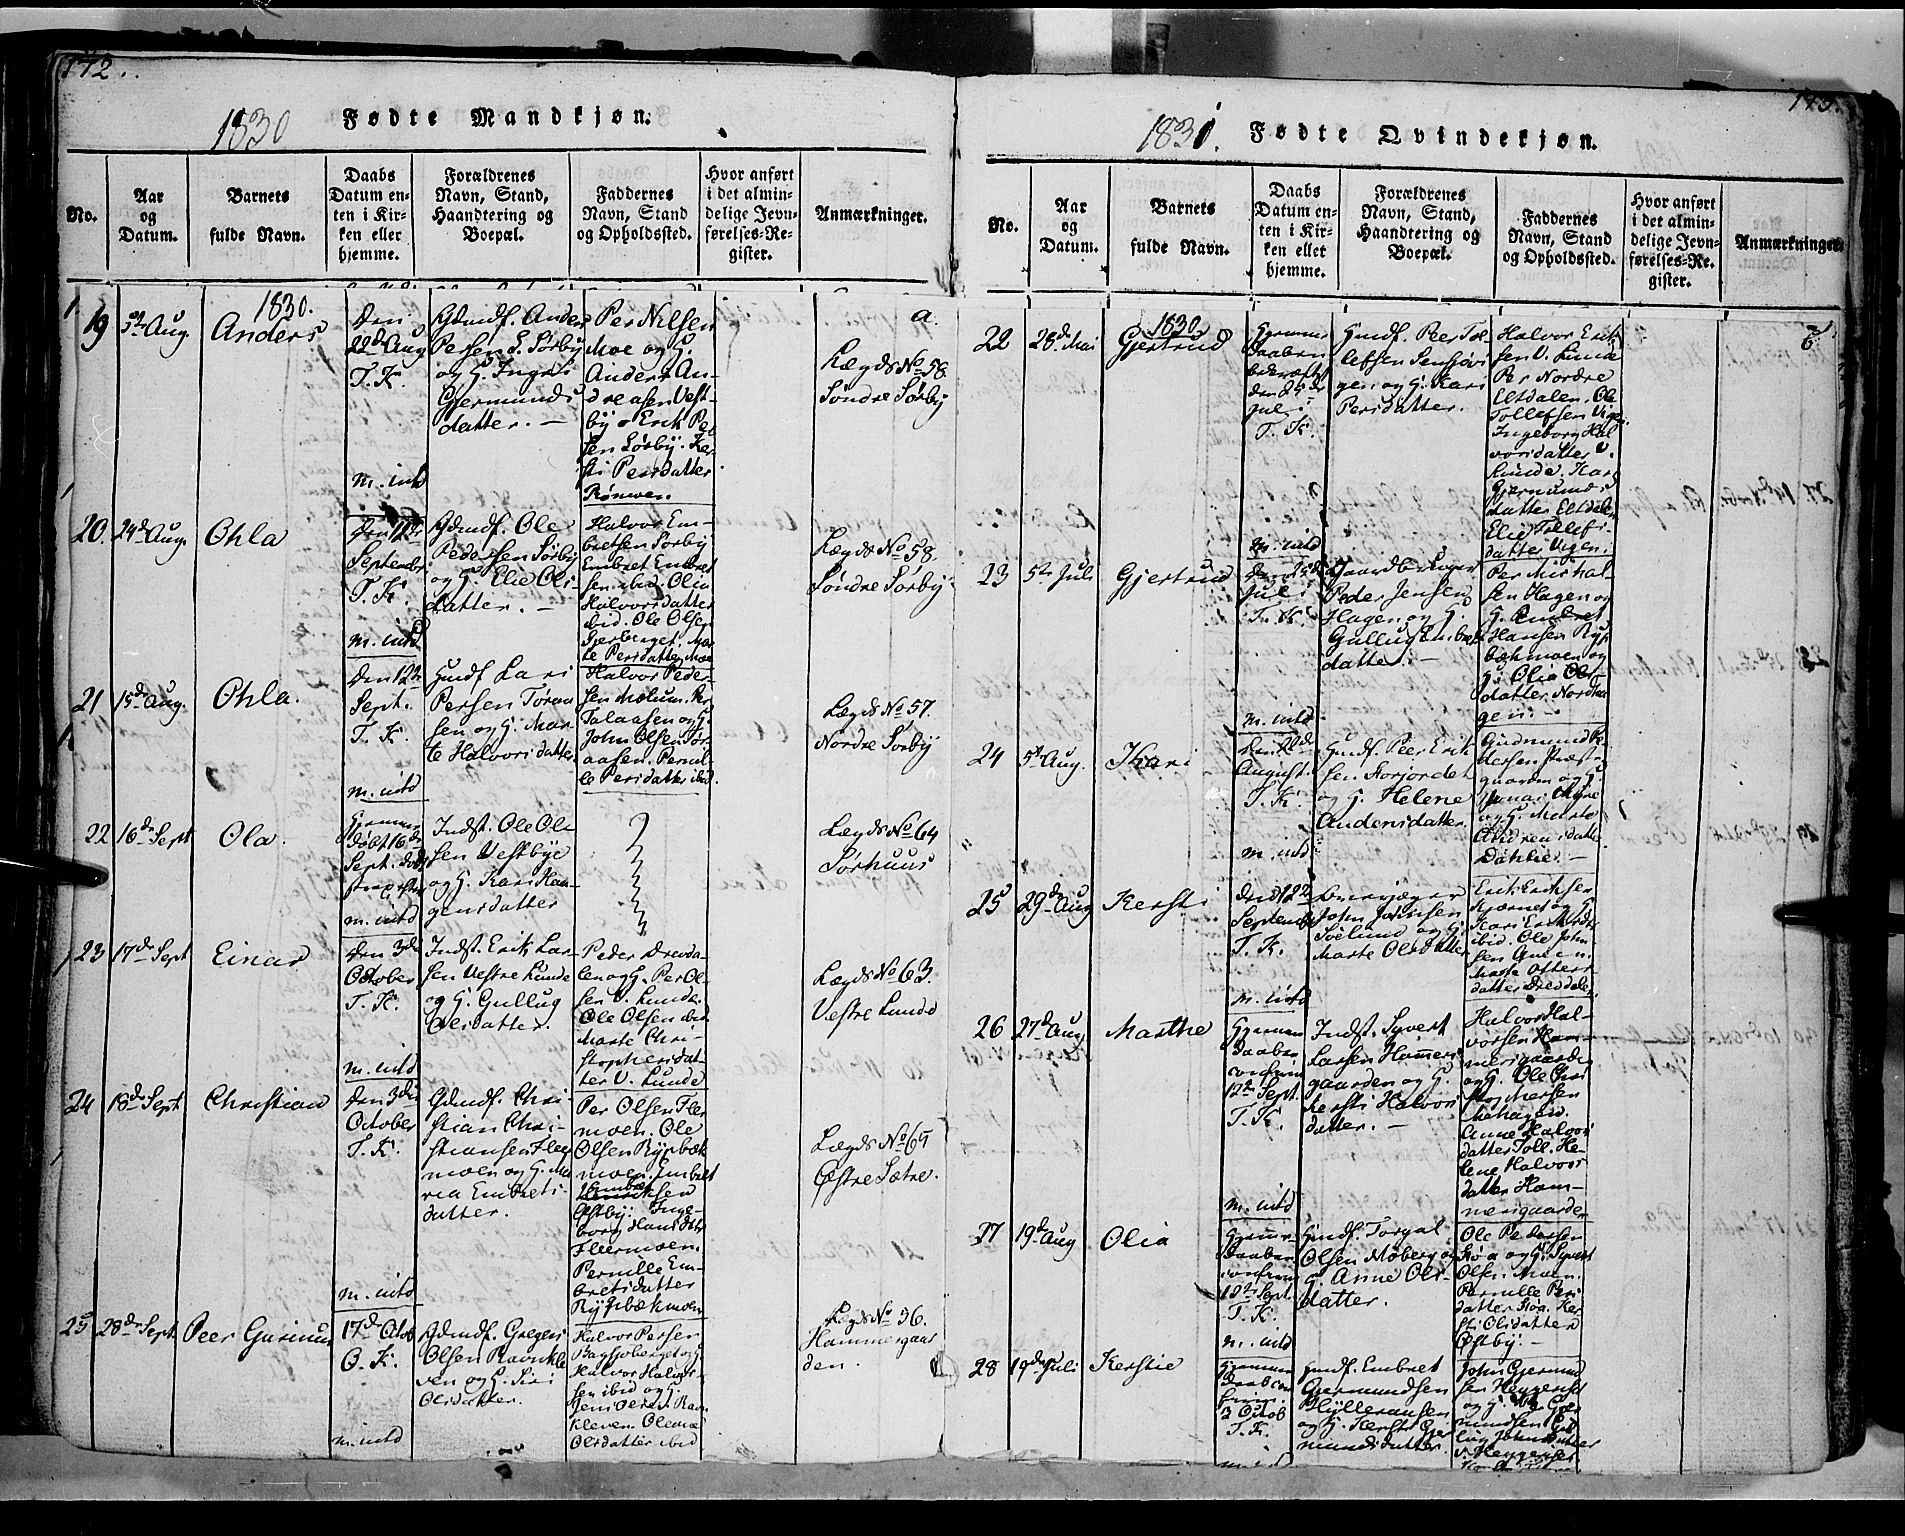 172.
1830
Fødte Mandkjøn.
No.
Aar
og
Datum.
Barnets
fulde Navn.
Daabs
Datum en-
ten i Kir-
ken eller
hjemme.
Forældrenes
Navn, Stand,
Haandtering og
Boepæl.
Faddernes
Navn, Stand
og Opholdssted.
Hvor anført
i det almin-
delige Jevn-
førelses-Re-
gister.
Anmærkninger.
1830.
19
Aug.
Anders
Den
22de Aug
T. K.
m. intd
Gdmdf. Anders
Persen S. Sørby
og G. Ingri
Gjermunds
datter. —
Per Nilsen
Moe og G.
Anders An-
dreasen Vest-
by o Erik Per
sen Sørby. Ker
sti Persdatter
Rønmoen.
a.
Lægds No 58.
Søndre Sørby
20.
24de Aug.
Ohla
Den 12te
September
T. K.
m. intd
Gdmdf. Ole
Pedersen Sørby
og G. Elie Ols
datter. —
Halvor Em-
bretsen Sørby
Embret Embret
sen ibid. Olia
Halvorsdatter
ibid. Ole Olsen
Mar
te Persdatter Moe
Lægds No 58.
Søndre Sørby
21
15de Aug.
Ohla.
Den 12te
Sept.
T. K.
m. intd
Gmdf. Lars
Persen Tøraa
sen og G. Mar
te Halvorsdatter
Halvor Peder-
sen Mælum. Per
og G.
John Olsen Tør
aasen. Pernil-
le Persdatter ibid
Lægds No 57.
Nordre Sørby
22
16de Sept
Ola.
døbt 16de
Sept. døde
strax efter
m. intd
Indst. Ole Ole
sen Vestbye
og G. Kari Haa-
gensdatter
Lægds No 64
Sørhuus
23
17de Sept
Einar
Den 3de
October
T. K.
m. intd
Indst. Erik Lar-
sen Vestre Lunde
og G. Gullug
Olsdatter.
Peder Drevda-
len og G. Per Ol-
sen V. Lunde.
Ole Olsen ibid.
Marte Chri-
stophersdat-
ter V. Lunde
Lægds No 63.
Vestre Lunde
24
18de Sept
Christian
Den 3de
October
T. K.
m. intd
Gdmdf. Chri-
stian Chri-
stiansen Fleer
moen og G. Ma
ria Embrets-
datter.
Per Olsen Fler
moen. Ole
Olsen Rypbæk
moen. Embret
Embret
Østby. Inge-
borg Hansdatter
Fleermoen.
Pernille Em-
bretsdatter
Rypbækmoen
Lægds No 65
Østre Sætre.
25
28de Sept.
Peer
17de Octob
O. K.
m. intd
Gdmdf. Gregers
Olsen Ravnkle
ven og G. Siri
Olsdatter.
Halvor Persen
og G.
Halvor Halvor
sen ibid og G.
Rav
kleven. Olea
Olsdatter ibid
Lægds No 36.
Hammergaar
den.
173.
1831.
Fødte Qvindekjøn.
No.
Aar
og
Datum.
Barnets
fulde Navn.
Daabs
Datum en-
ten i Kir-
ken ellet
hjemme.
Forældrenes
Navn, Stand,
Haandtering og
Boepæl.
Faddernes
Navn, Stand
og Opholdssted.
Hvor anført
i det almin-
delige Jevn-
førelses-Re-
gister.
Anmærkninger.
1830.
22
28de Mai
Gjertrud
Hjemme
Daaben
bekræftet
den 25de
Juli
T. K.
m. intd
Gmdf. Peer Tol
lefsen
gen og G. Kari
Persdatter.
Halvor Erik
sen V. Lunde
Per Nordre
Eltdalen. Ole
Tollefsen Vigen.
Ingeborg Hal
vorsdatter V.
Lunde. Kari
Gjermunds
datter Eltdalen
Elie Tollefs
datter Vigen.
23
5te Juli
Gjertrud
Den 25de
Juli
T. K.
m. intd
Gaardbruger
Peder Jensen
Hagen og G.
Gullug Embrets
datter. —
Per Mickel
sen Hagen og
G. Embret
Hansen Ryp
bækmoen og
G. Olia Ols
datter Nordha
gen. —
24
5te Aug.
Kari
Den 22de
August
T. K.
m. intd
Gmdf. Peer Erik
sen Storjordet
og G. Helene
Andersdatter.
Gudmund Pe
dersen Præst-
gaarden og G.
og G. Marte
Andreasdatter
Dahlie. —
25
29de Aug
Kersti
Den 12te
September
T. K.
m. intd
John Jonsen
Soelund og G.
Marte Olsdatter
Erik Eriksen
Kjærnet og G.
Kari Eriksdtr
ibid. Ole John
sen
Marte
datter Drevdalen
26
27de Aug
Marthe
Hjemme
Daaben
confirm
12te Sept.
T. K.
m. intd
Indst. Syvert
Larsen Hammers
gaarden og G.
Kersti Halvors
datter. —
Halvor Hal-
vorsen Ham-
mersgaarden
og G. Ole Chri
stophersen
Anne Halvors
datter Toll. He-
lene Halvors
datter Ham-
mersgaarden
27
19de Aug
Olia
Hjemme
Daaben
confirm
12te Sept
T. K.
m. intd
Gmdf. Torgal
Olsen Moberg og
G. Anne Ols-
datter.
Ole Pedersen
Røa og G. Syvert
Olsen Moen.
Pernille Pers
datter Røa. Ker
sti Olsdatter
Østby. —
28
19de Juli
Kerstie
Hjemme
Daab con
firm.
3 Octob
T. K.
Gmdf. Embret
Gjermundsen
og G. Kersti Gjer
mundsdatter.
John Gjermund
sen Heggeriset
og G. Gjer
mundsen
John